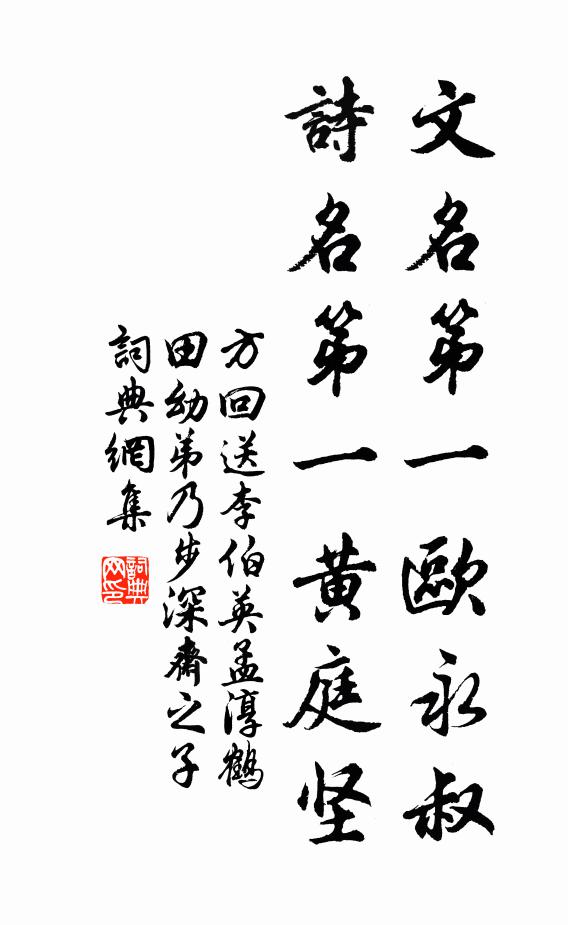 文名第一歐永叔
詩名第一黃庭坚
方回送李伯英孟淳鶴
田幼弟乃步深齋之子
詞典網集
詞典
网印